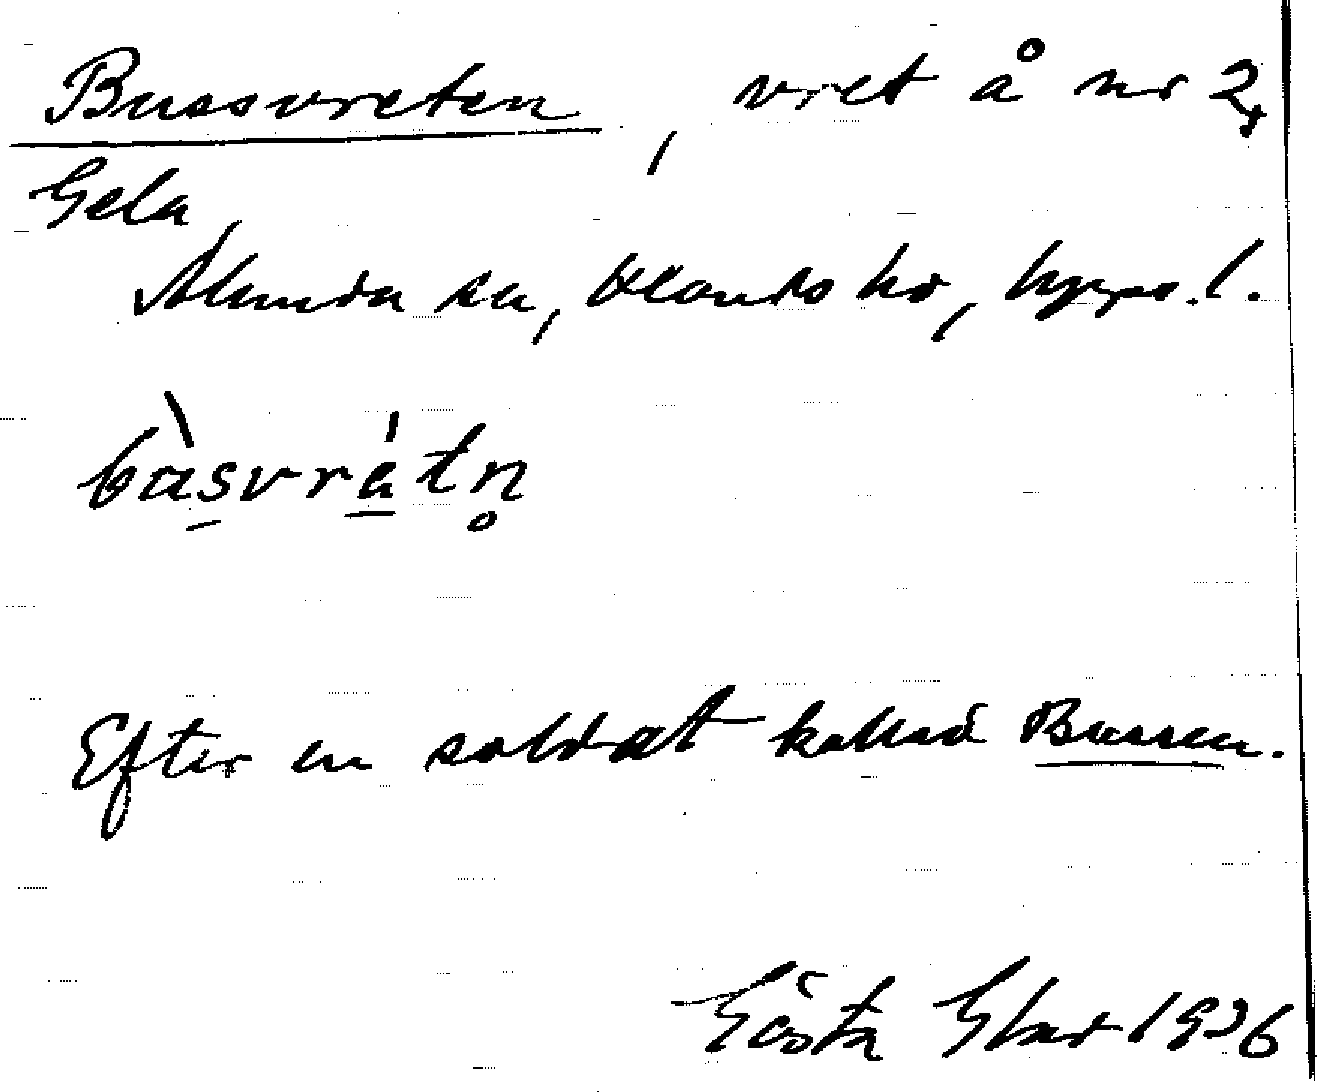 Bussvreten, vret å nr 2,
Gela
Almunda sn, Olands hd, Upps. l.
bàsvrátn̥
Efter en soldat kallad Bussen.
Gösta 1926